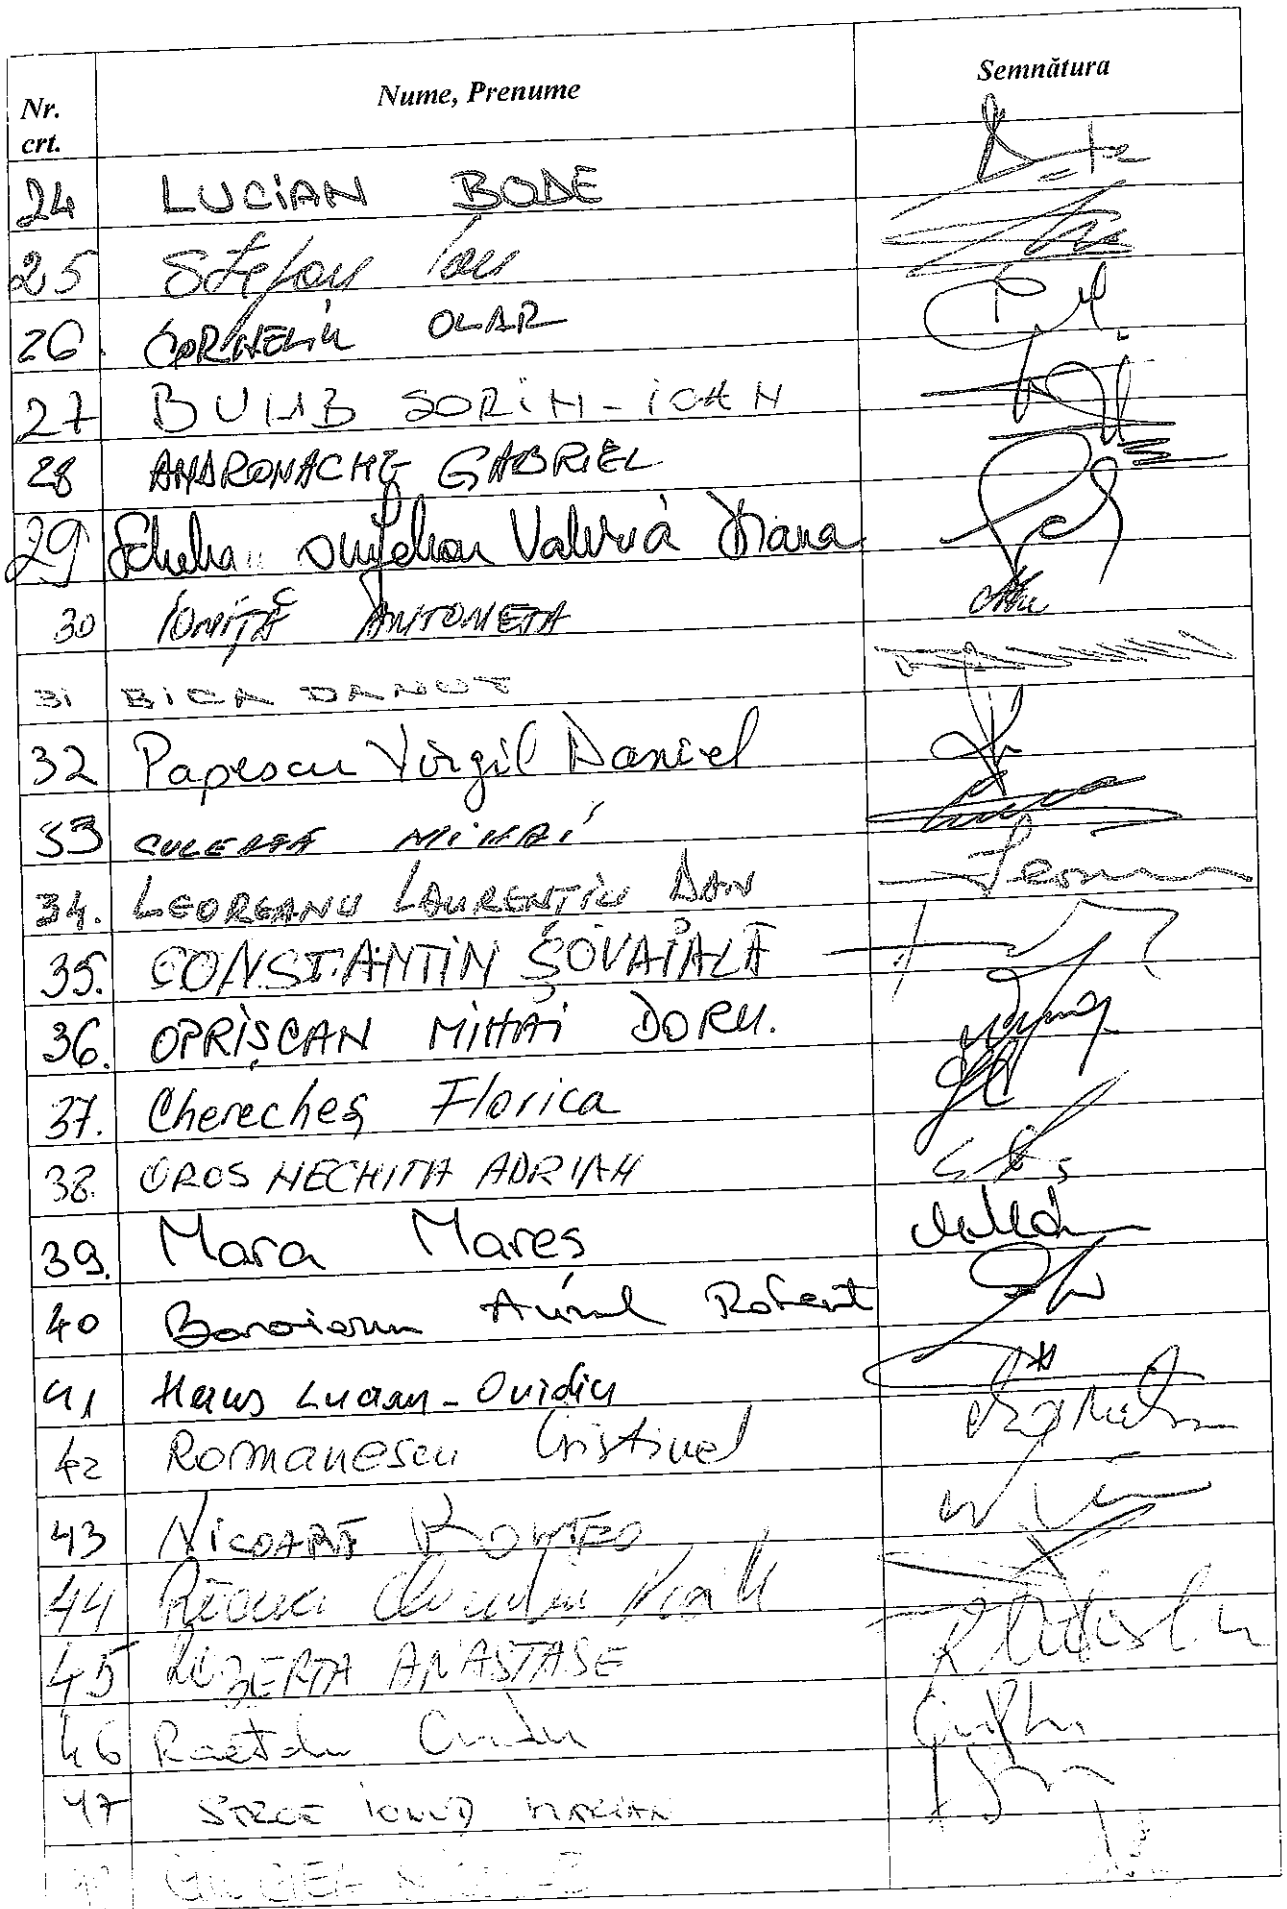 Nr. crt. Nume, Prenume Semnătura
24 LUCIAN BODE
25 Ștefan Ion
26. CORNELIU OLAR
27 BUMB SORIN-IOAN
28 ANDRONACHE GABRIEL
29 Schelean Valeria Diana
30 IONIȚĂ ANTONETA
31 BICA DANUT
32 Popescu Virgil Daniel
33 CULEAFĂ MIHAI
34. LEOREANU LAURENȚIU DAN
35. CONSTANTIN ȘOVĂIALĂ
36. OPRIȘCAN MIHAI DORU.
37. Cherecheș Florica
38. OROS NECHITA ADRIAN
39. Mara Mareș
40 Boroianu Aurel Robert
41 Heius Lucian-Ovidiu
42 Romanescu Cristinel
43 NICOARĂ ROMEO
44
45 ROBERTA ANASTASE
46
47 STROE IONUȚ MARIAN